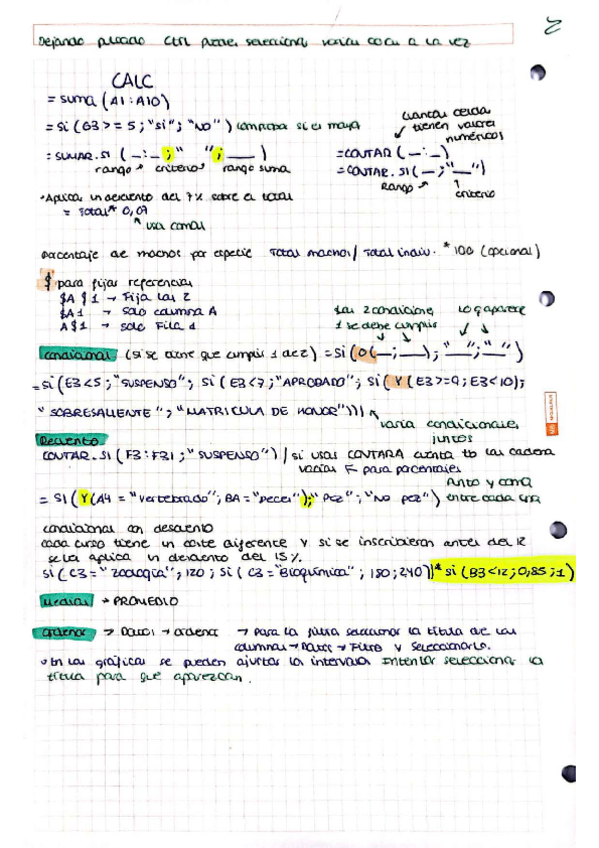 Dejando pulsado Ctrl puedes seleccionar varias cosas a la vez
2
CALC
= suma (A1:A10)
= Si (G3 >= 5 ; "SI" ; "NO") comprueba si es mayor
cuantas celdas
tienen valores
numéricos
= SUMAR.SI ( _:_ ; " " ; ___ )
rango criterio rango suma
= CONTAR ( _:_ )
= CONTAR.SI ( _ ; "_" )
Rango criterio
• Aplica un descuento del 7% sobre el total
= Total * 0,07
usa comas
porcentaje de machos por especie Total machos / Total indiv. * 100 (opcional)
$ para fijar referencias
$A$1 → Fija las 2
$A1 → Solo columna A
A$1 → Solo Fila 1
Las 2 condiciones
1 se debe cumplir
Lo q aparece
condicional (si se tiene que cumplir 1 de 2) = Si (O( _ ; _ ); "_" ; "_" )
= Si (E3<5 ; "SUSPENSO" ; Si (E3<7 ; "APROBADO" ; Si (Y (E3>=9 ; E3<10);
"SOBRESALIENTE" ; "MATRICULA DE HONOR")))
varias condicionales
juntos
Recuento
CONTAR.SI (F3:F31 ; "SUSPENSO") / si usas CONTARA cuenta tb las cadenas
varias F para porcentajes
Punto y coma
entre cada una
= SI (Y(A4 = "vertebrado" ; BA = "Peces"); "PEZ" ; "No pez")
condicional con descuento
cada curso tiene un coste diferente y si se inscribieron antes del 12
se les aplica un descuento del 15%.
Si (C3 = "Zoología" ; 120 ; Si (C3 = "Bioquímica" ; 180 ; 240)) * Si (B3<12 ; 0,85 ; 1)
Medias → PROMEDIO
Ordenar → Datos → ordenar → Para los filtros seleccionar los títulos de las
columnas → Datos → Filtro y Seleccionarlo.
• En las gráficas se pueden ajustar los intervalos Intentar seleccionar los
títulos para que aparezcan.